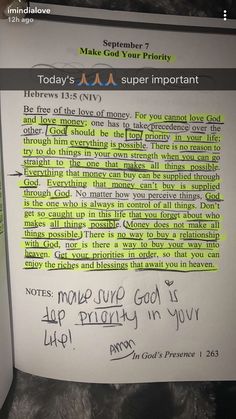 imindialove
12h ago
September 7
Make God Your Priority
Today's 🙏🏽🙏🏽🙏🏽 super important
Hebrews 13:5 (NIV)
Be free of the love of money. For you cannot love God
and love money; one has to take precedence over the
other. God should be the top priority in your life;
through him everything is possible. There is no reason to
try to do things in your own strength when you can go
straight to the one that makes all things possible.
Everything that money can buy can be supplied through
God. Everything that money can't buy is supplied
through God. No matter how you perceive things, God
is the one who is always in control of all things. Don't
get so caught up in this life that you forget about who
makes all things possible. (Money does not make all
things possible.) There is no way to buy a relationship
with God, nor is there a way to buy your way into
heaven. Get your priorities in order, so that you can
enjoy the riches and blessings that await you in heaven.
NOTES: make sure God is
top priority in your
life!
Amen
In God's Presence | 263